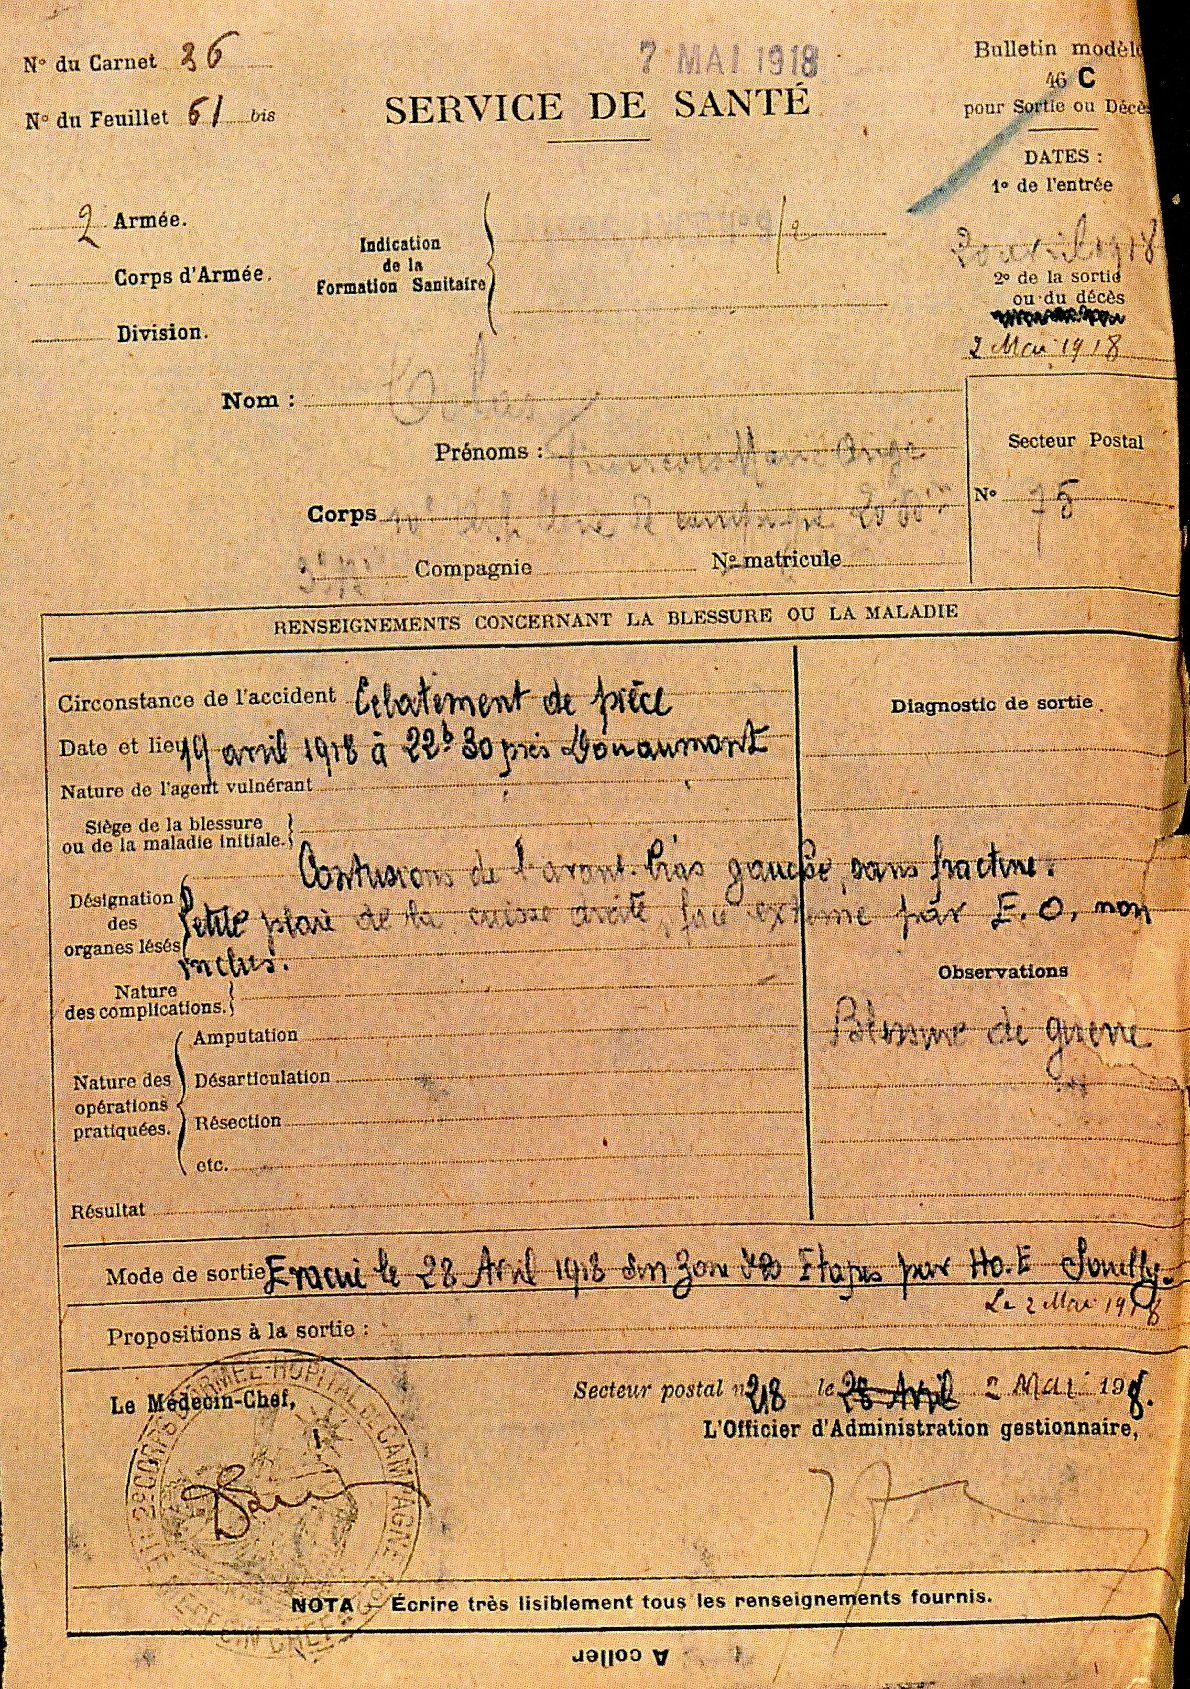 N° du Carnet 36
7 MAI 1918
Bulletin modèle
46 C
pour Sortie ou Décès
N° du Feuillet 61 bis
SERVICE DE SANTÉ
DATES :
1° de l'entrée
2 Armée.
Corps d'Armée.
Division.
Indication
de la
Formation Sanitaire
avril 1918
2° de la sortie
ou du décès
2 Mai 1918
Nom : Colas
Prénoms : François Marie Ange
Secteur Postal
N° 75
Corps de campagne
Compagnie
N° matricule
RENSEIGNEMENTS CONCERNANT LA BLESSURE OU LA MALADIE
Circonstance de l'accident Eclatement de pièce
Diagnostic de sortie.
Date et lieu 19 avril 1918 à 22h30 près Douaumont
Nature de l'agent vulnérant
Siège de la blessure
ou de la maladie initiale.
Contusions de l'avant-bras gauche, sans fracture.
Désignation
des
organes lésés
Petite plaie de la cuisse droite, face externe par E. O. non
inclus.
Observations
Blessure de guerre
Nature
des complications.
Nature des
opérations
pratiquées.
Amputation
Désarticulation
Résection
etc.
Résultat
Mode de sortie Evacué le 28 Avril 1918 sur Zone des Etapes par Ho.E Souilly.
Le 2 Mai 1918
Propositions à la sortie :
Le Médecin-Chef,
Secteur postal n° 218 le 28 Avril 2 Mai 1918.
L'Officier d'Administration gestionnaire,
HOPITAL DE CAMPAGNE
MEDECIN CHEF
NOTA Écrire très lisiblement tous les renseignements fournis.
A coller